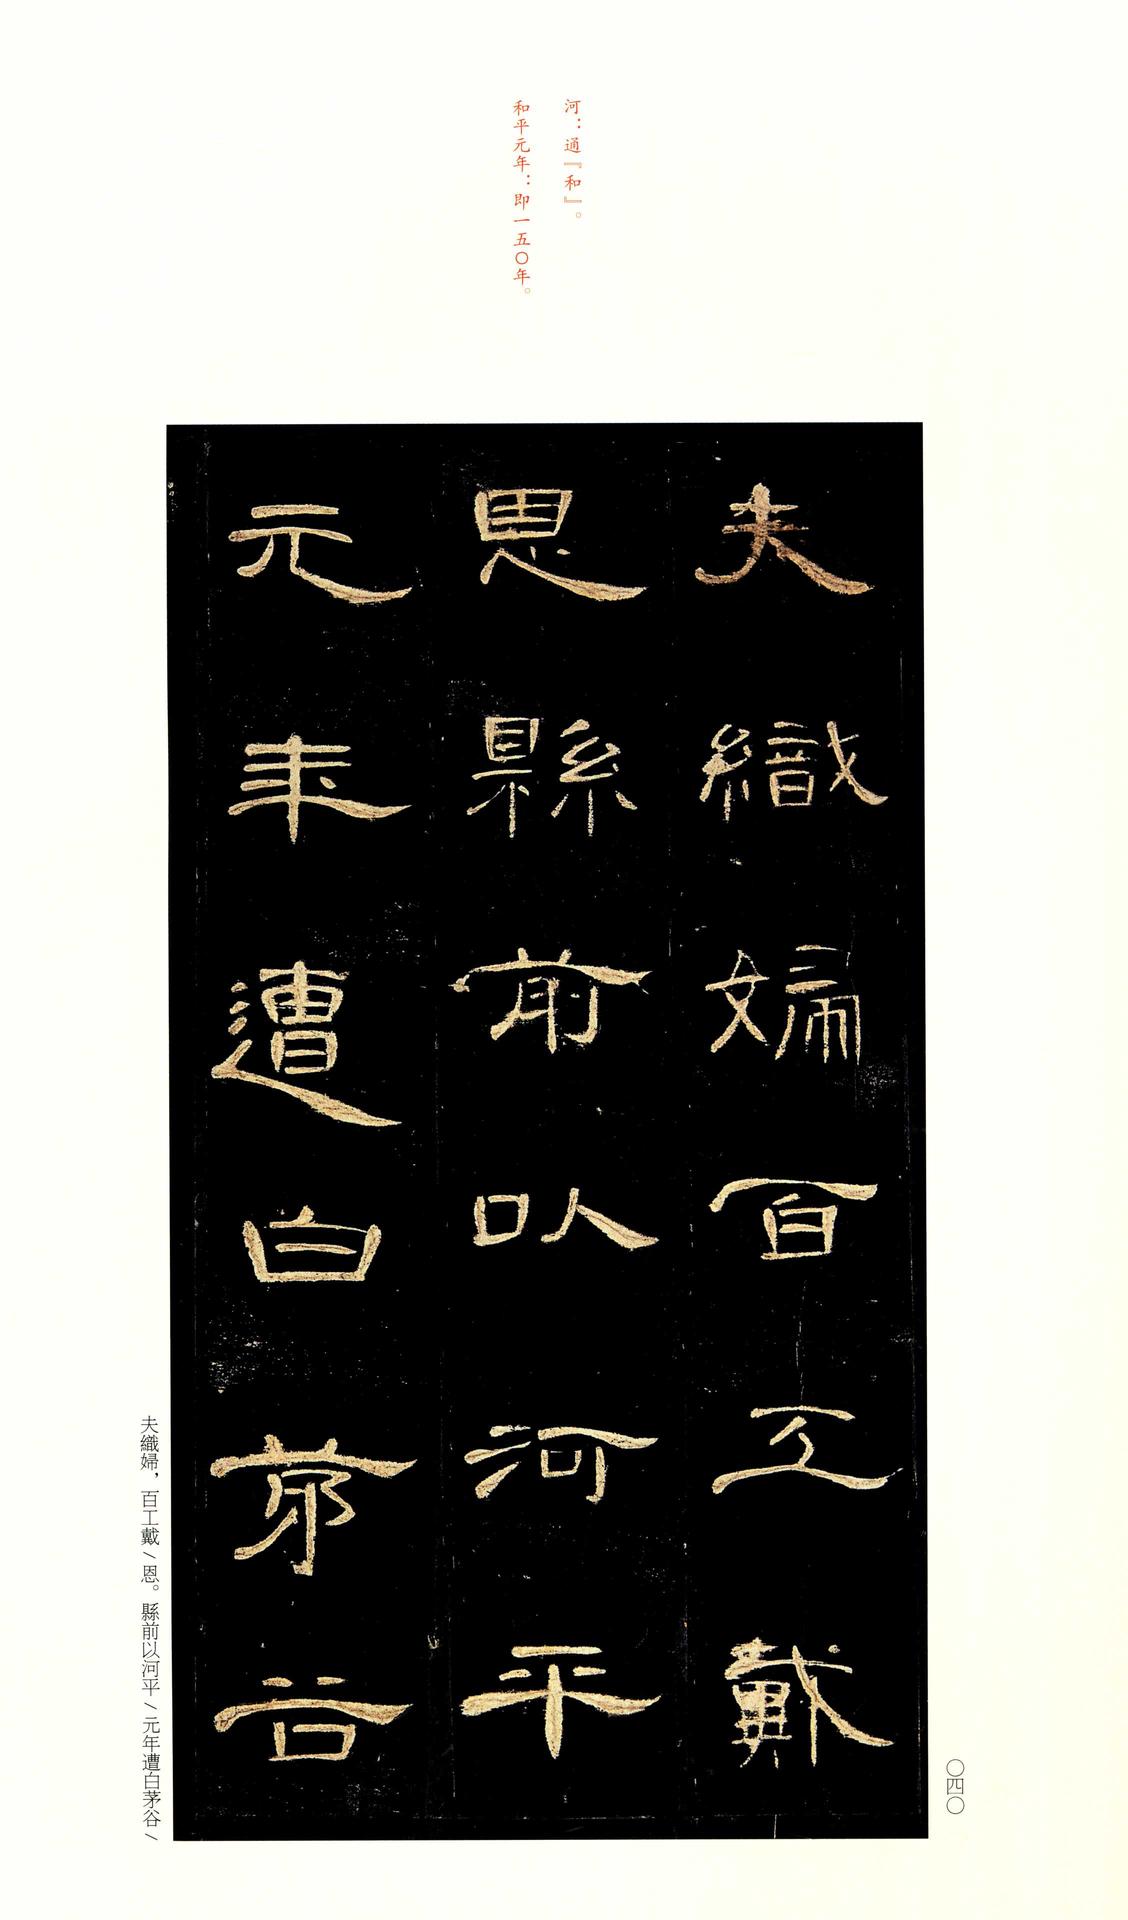 河：通『和』。
和平元年：即一五〇年。
夫織婦百工戴
恩縣前以河平
元年遭白茅谷
夫織婦，百工戴／恩。縣前以河平／元年遭白茅谷／
〇四〇